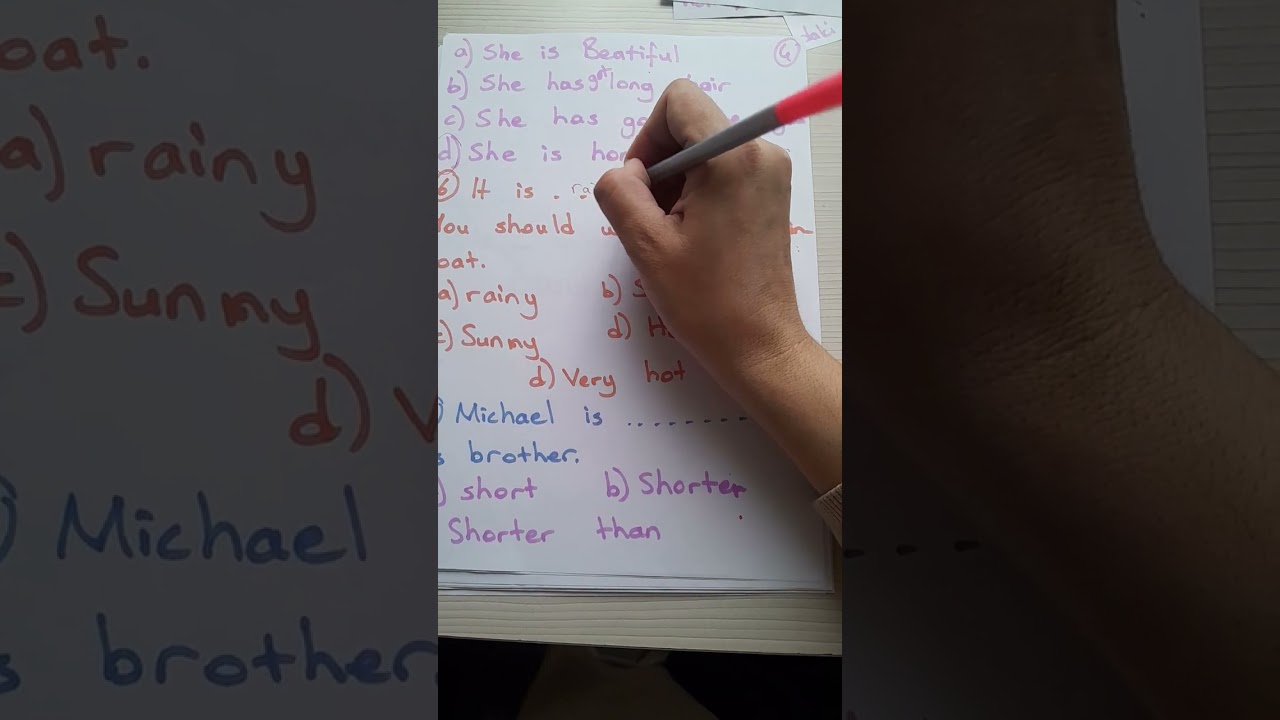 a) She is Beatiful
④ taki
b) She has got long hair
c) She has
d) She is
6 It is . . ra
You should
oat.
a) rainy b) S
c) Sunny d) H
d) Very hot
Michael is .........
s brother.
) short b) Shorter
Shorter than